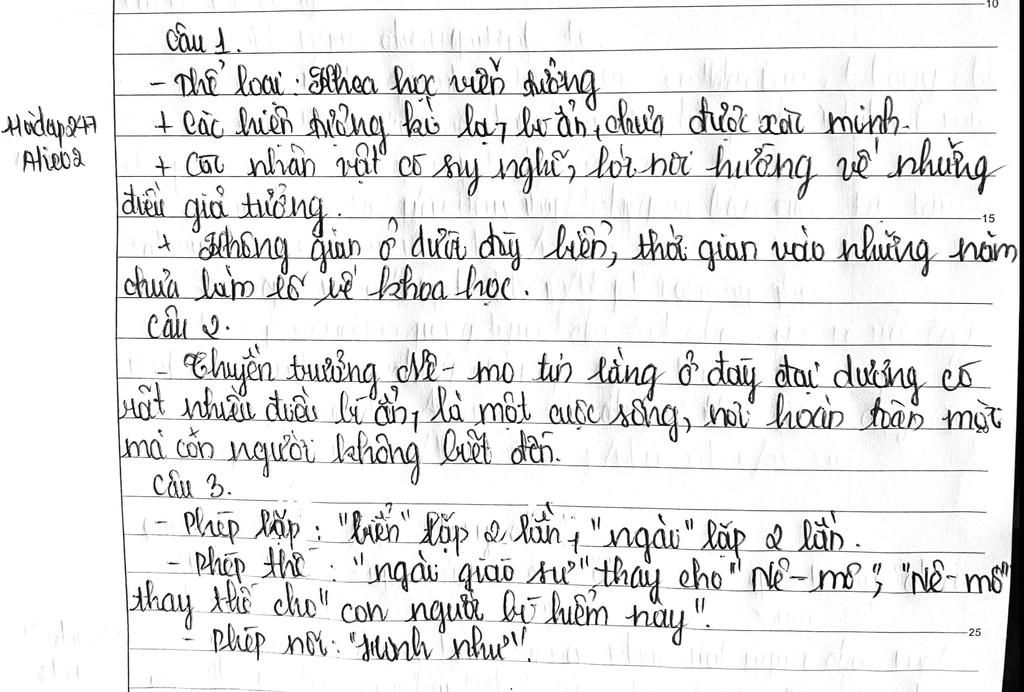 10
Câu 1.
- Thể loại: Khoa học viễn tưởng
+ Các hiện tượng kì lạ, bí ẩn, chưa được xác minh.
+ Các nhân vật có suy nghĩ, lời nói hướng về những
điều giả tưởng.
15
+ Không gian ở dưới đáy biển, thời gian vào những năm
chưa làm rõ về khoa học.
Câu 2.
- Thuyền trưởng Nê-mo tin rằng ở đáy đại dương có
rất nhiều điều bí ẩn, là một cuộc sống, nơi hoàn toàn mới
mà con người không biết đến.
Câu 3.
- Phép lặp: "biển" lặp 2 lần, "ngài" lặp 2 lần.
- Phép thế: "ngài giáo sư" thay cho "Nê-mô", "Nê-mô"
thay thế cho "con người bí hiểm này".
25
- Phép nối: "Hình như".